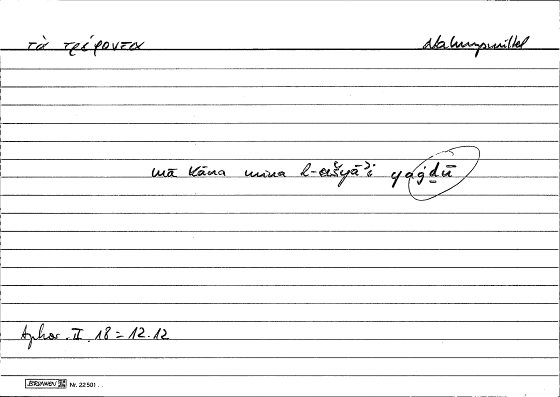 τὰ τρέφοντα Nahrungsmittel
mā kāna mina l-ašyāʾi yaġḏū
Aphor. II. 18 = 12.12
BRUNNEN Nr. 22501